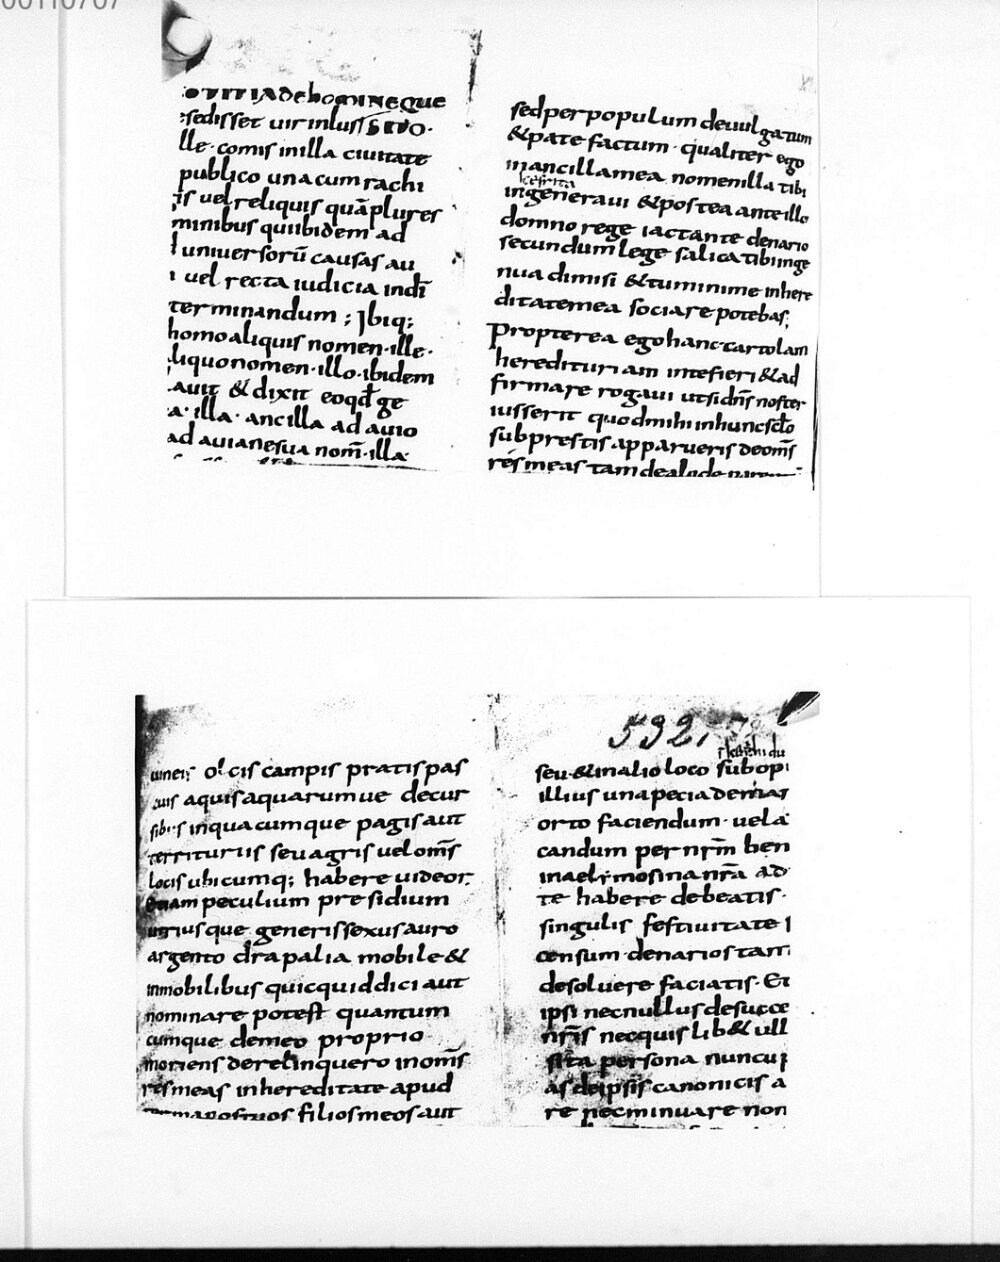 00110767
OTITIA de homINE QUE
sedisset uir inlust SITO·
lle· comis inilla ciuitate
publico unacum rachi
is uel reliquis quā plures
minibus quiibidem ad
uniuersorū causas au
i uel recta iudicia indī
terminandum ; Ibiq;
homo aliquis nomen·ille·
liquo nomen·illo·ibidem
auit & dixit eo qđ ge
a· illa· ancilla ad auio
ad auianesua nom̄·illa·
sed per populum deuulgatum
& pate factum· qualiter ego
in ancillamea nomenilla tibi
ingeneraui & postea anteillo
domno rege iactante denario
secundum lege salica tibi inge
nua dimisi & tuminime inhere
ditatemea sociare potebas;
Propterea ego hanc·cartolam
heredituriam intefieri & ad
firmare rogaui utsi dn̄s noster
iusserit quodmihi inhunc sc̄lo
subprestis apparueris deom̄s
res meas tam dealode
ol cis campis pratis pas
cuis aquis aquarumue decur
sibus inquacumque pagis aut
territuriis seu agris uel om̄s
locis ubicumq; habere uideor
etiam peculium presidium
utriusque generis sexus auro
argento drapalia mobile &
inmobilibus quicquid dici aut
nominare potest quantum
cumque demeo proprio
moriens derelinquero in om̄s
res meas inhereditate apud
filios meos aut
532,
seu & inalio loco sub op
illius una pecia de
orto faciendum· uel a
candum per nr̄m ben
in aelimosina nr̄a ad
te habere debeatis·
singulis festiuitate
censum denarios tan
desoluere faciatis· Et
ipsi nec nullus desucce
nr̄is necquis lib& ull
sita persona nuncu
as deipsis canonicis a
re necminuare non